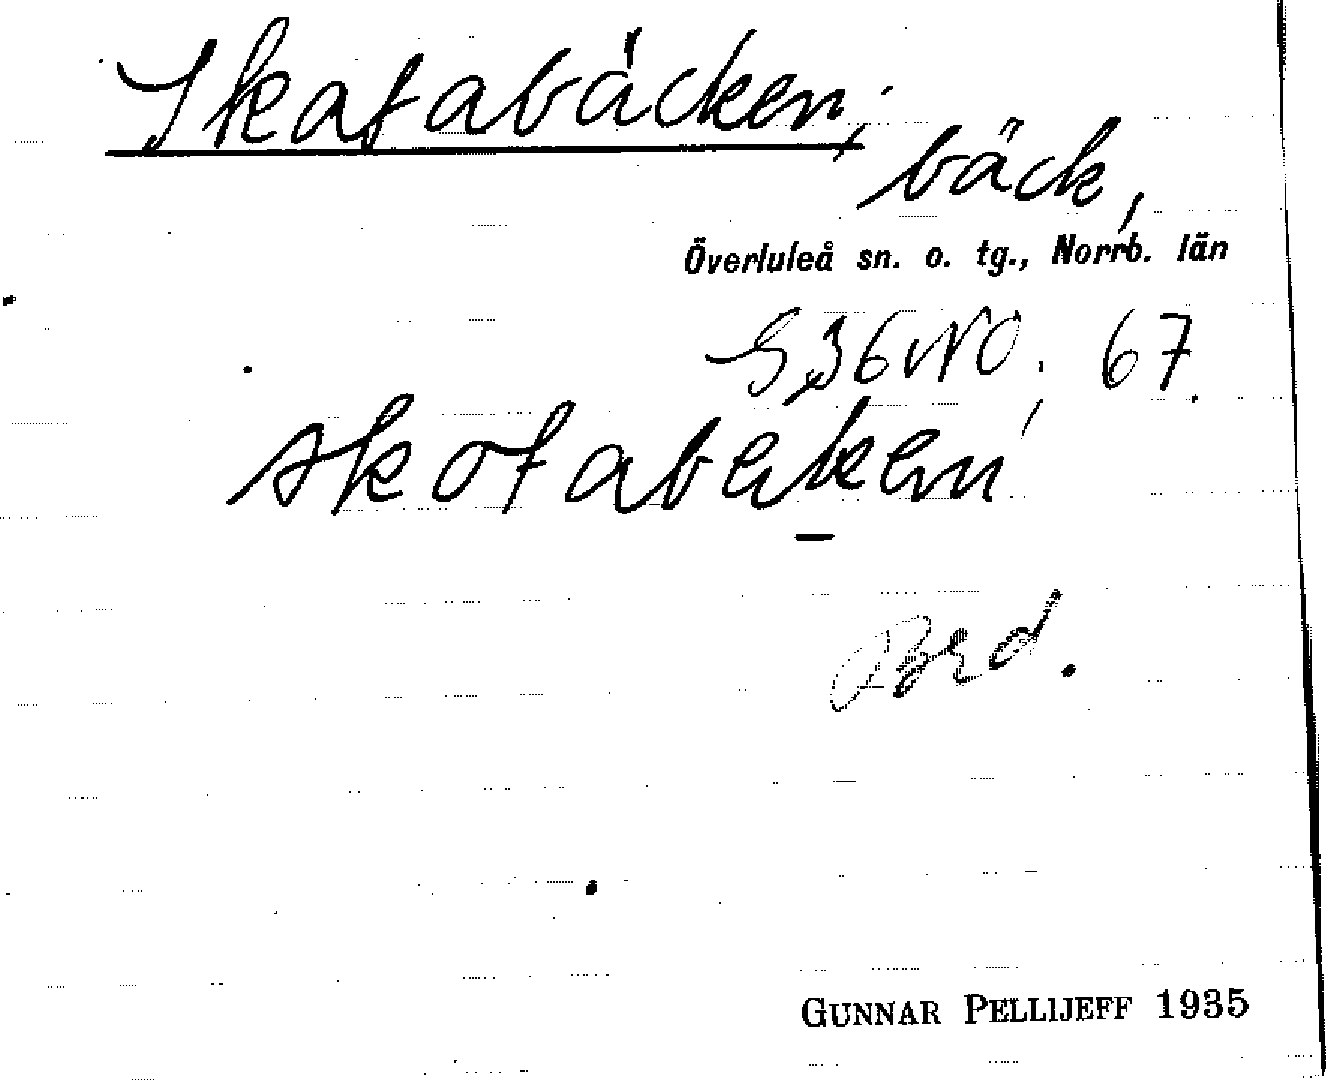 Skatabäcken;
bäck,
Överluleå sn. o. tg., Norrb. län
S, 36 NO. 67.
GUNNAR PELLIJEFF 1935